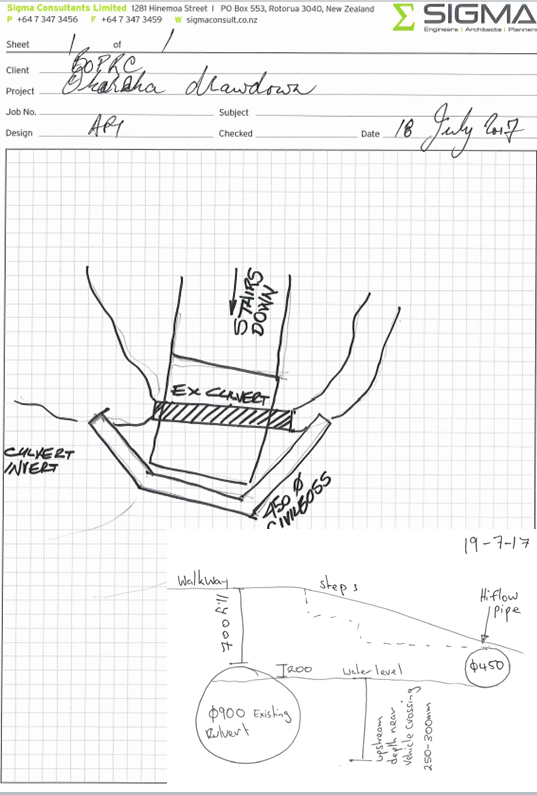 Sigma Consultants Limited 1281 Hinemoa Street | PO Box 553, Rotorua 3040, New Zealand
P +64 7 347 3456 F +64 7 347 3459 W sigmaconsult.co.nz
SIGMA
Engineers | Architects | Planners
Sheet 1 of 1
Client BOPRC
Project Okareka drawdown
Job No. Subject
Design Checked Date 18 July 2017
STAIRS
DOWN
EX CULVERT
CULVERT
INVERT
450 Ø
CIVILBOSS
19-7-17
Walkway
steps
Hiflow
pipe
700 fill
200
water level
Ø450
Ø900 Existing
Culvert
upstream
depth near
vehicle crossing
250-300mm